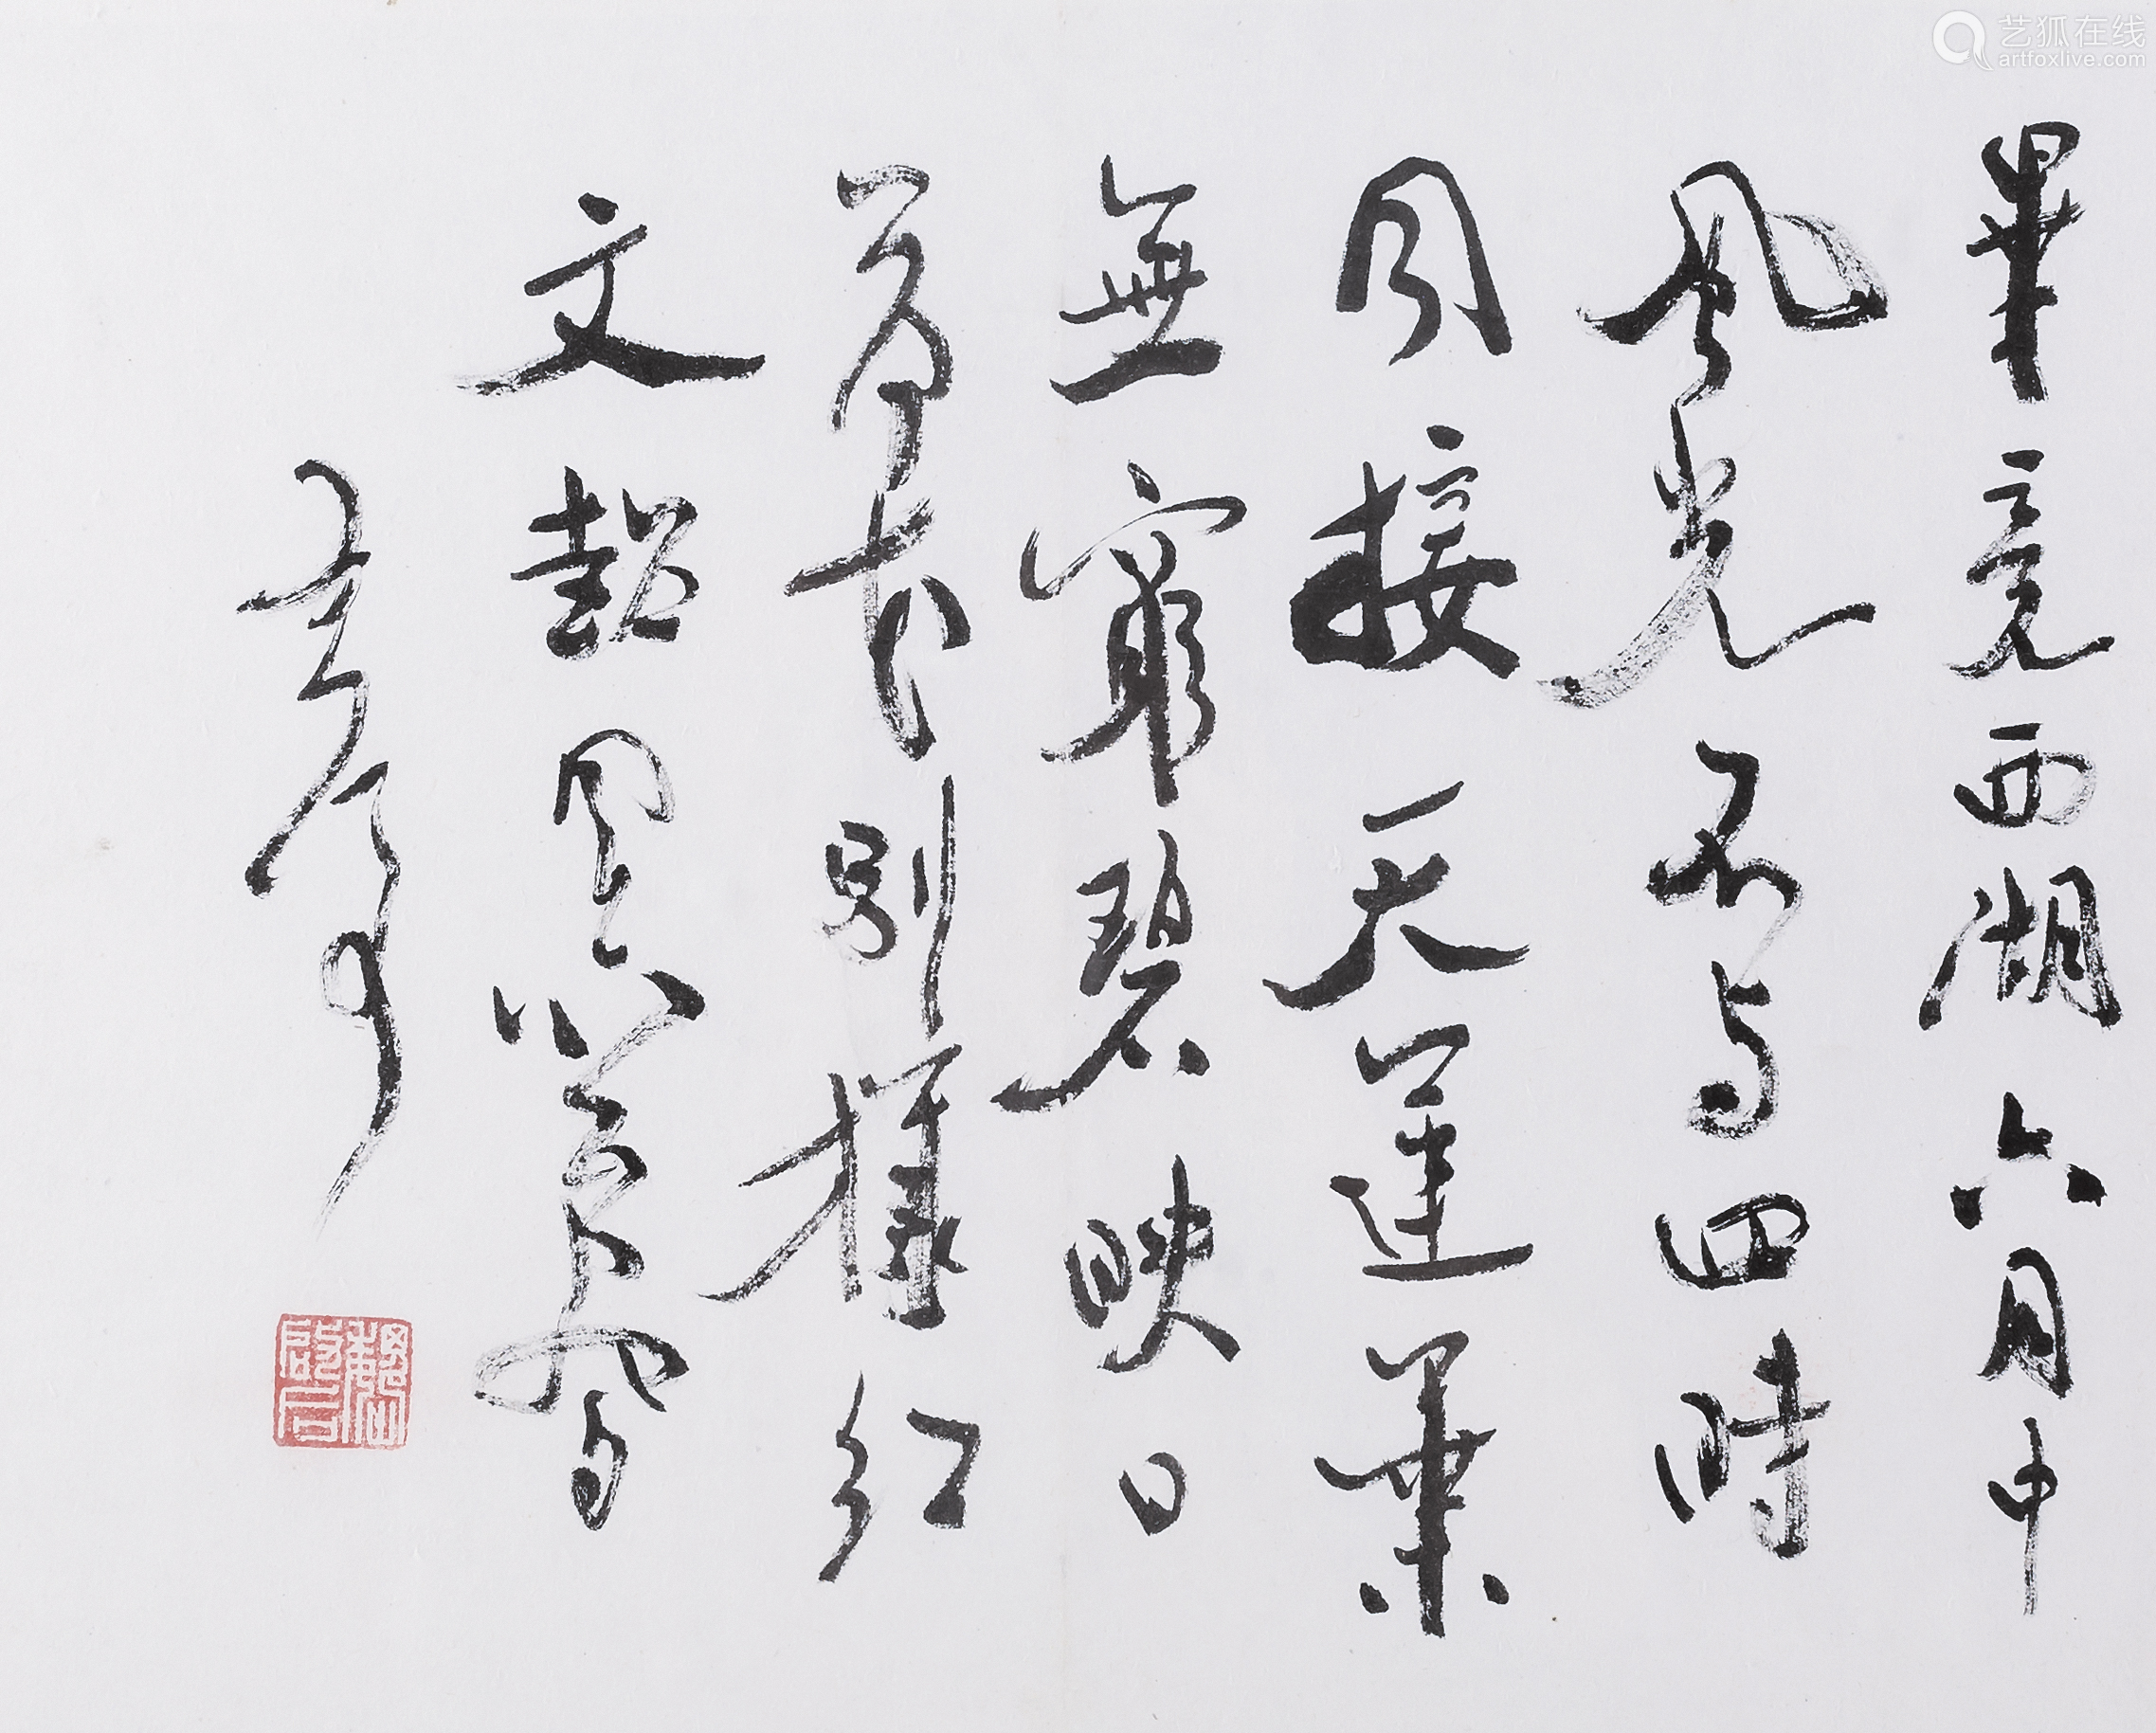 艺狐在线
artfoxlive.com
畢竟西湖六月中
風光不与四時
同接天蓮葉
無窮碧映日
荷花別樣紅
文